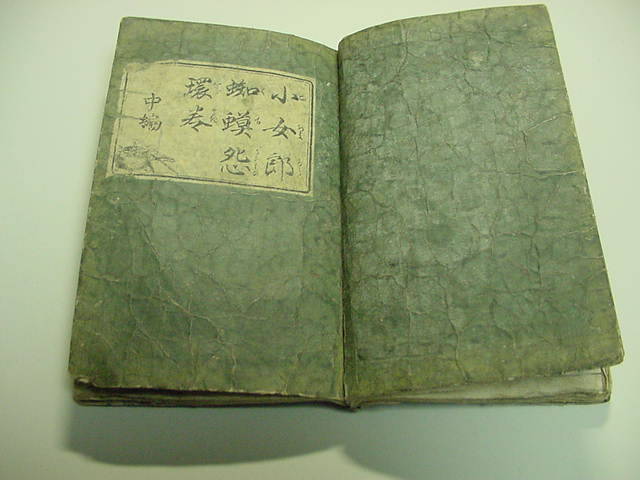 小女郎
蜘蟆怨
環巻
中編